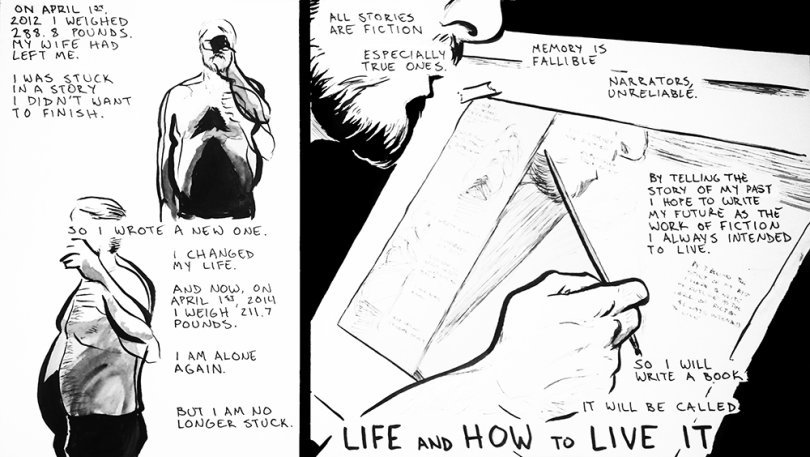 ON APRIL 1st,
2012 I WEIGHED
288.8 POUNDS.
MY WIFE HAD
LEFT ME.
I WAS STUCK
IN A STORY
I DIDN'T WANT
TO FINISH.
SO I WROTE A NEW ONE.
I CHANGED
MY LIFE.
AND NOW, ON
APRIL 1st, 2014
I WEIGH 211.7
POUNDS.
I AM ALONE
AGAIN.
BUT I AM NO
LONGER STUCK.
ALL STORIES
ARE FICTION
ESPECIALLY
TRUE ONES.
MEMORY IS
FALLIBLE
NARRATORS,
UNRELIABLE.
BY TELLING THE
STORY OF MY PAST
I HOPE TO WRITE
MY FUTURE AS THE
WORK OF FICTION
I ALWAYS INTENDED
TO LIVE.
SO I WILL
WRITE A BOOK
IT WILL BE CALLED
LIFE AND HOW TO LIVE IT